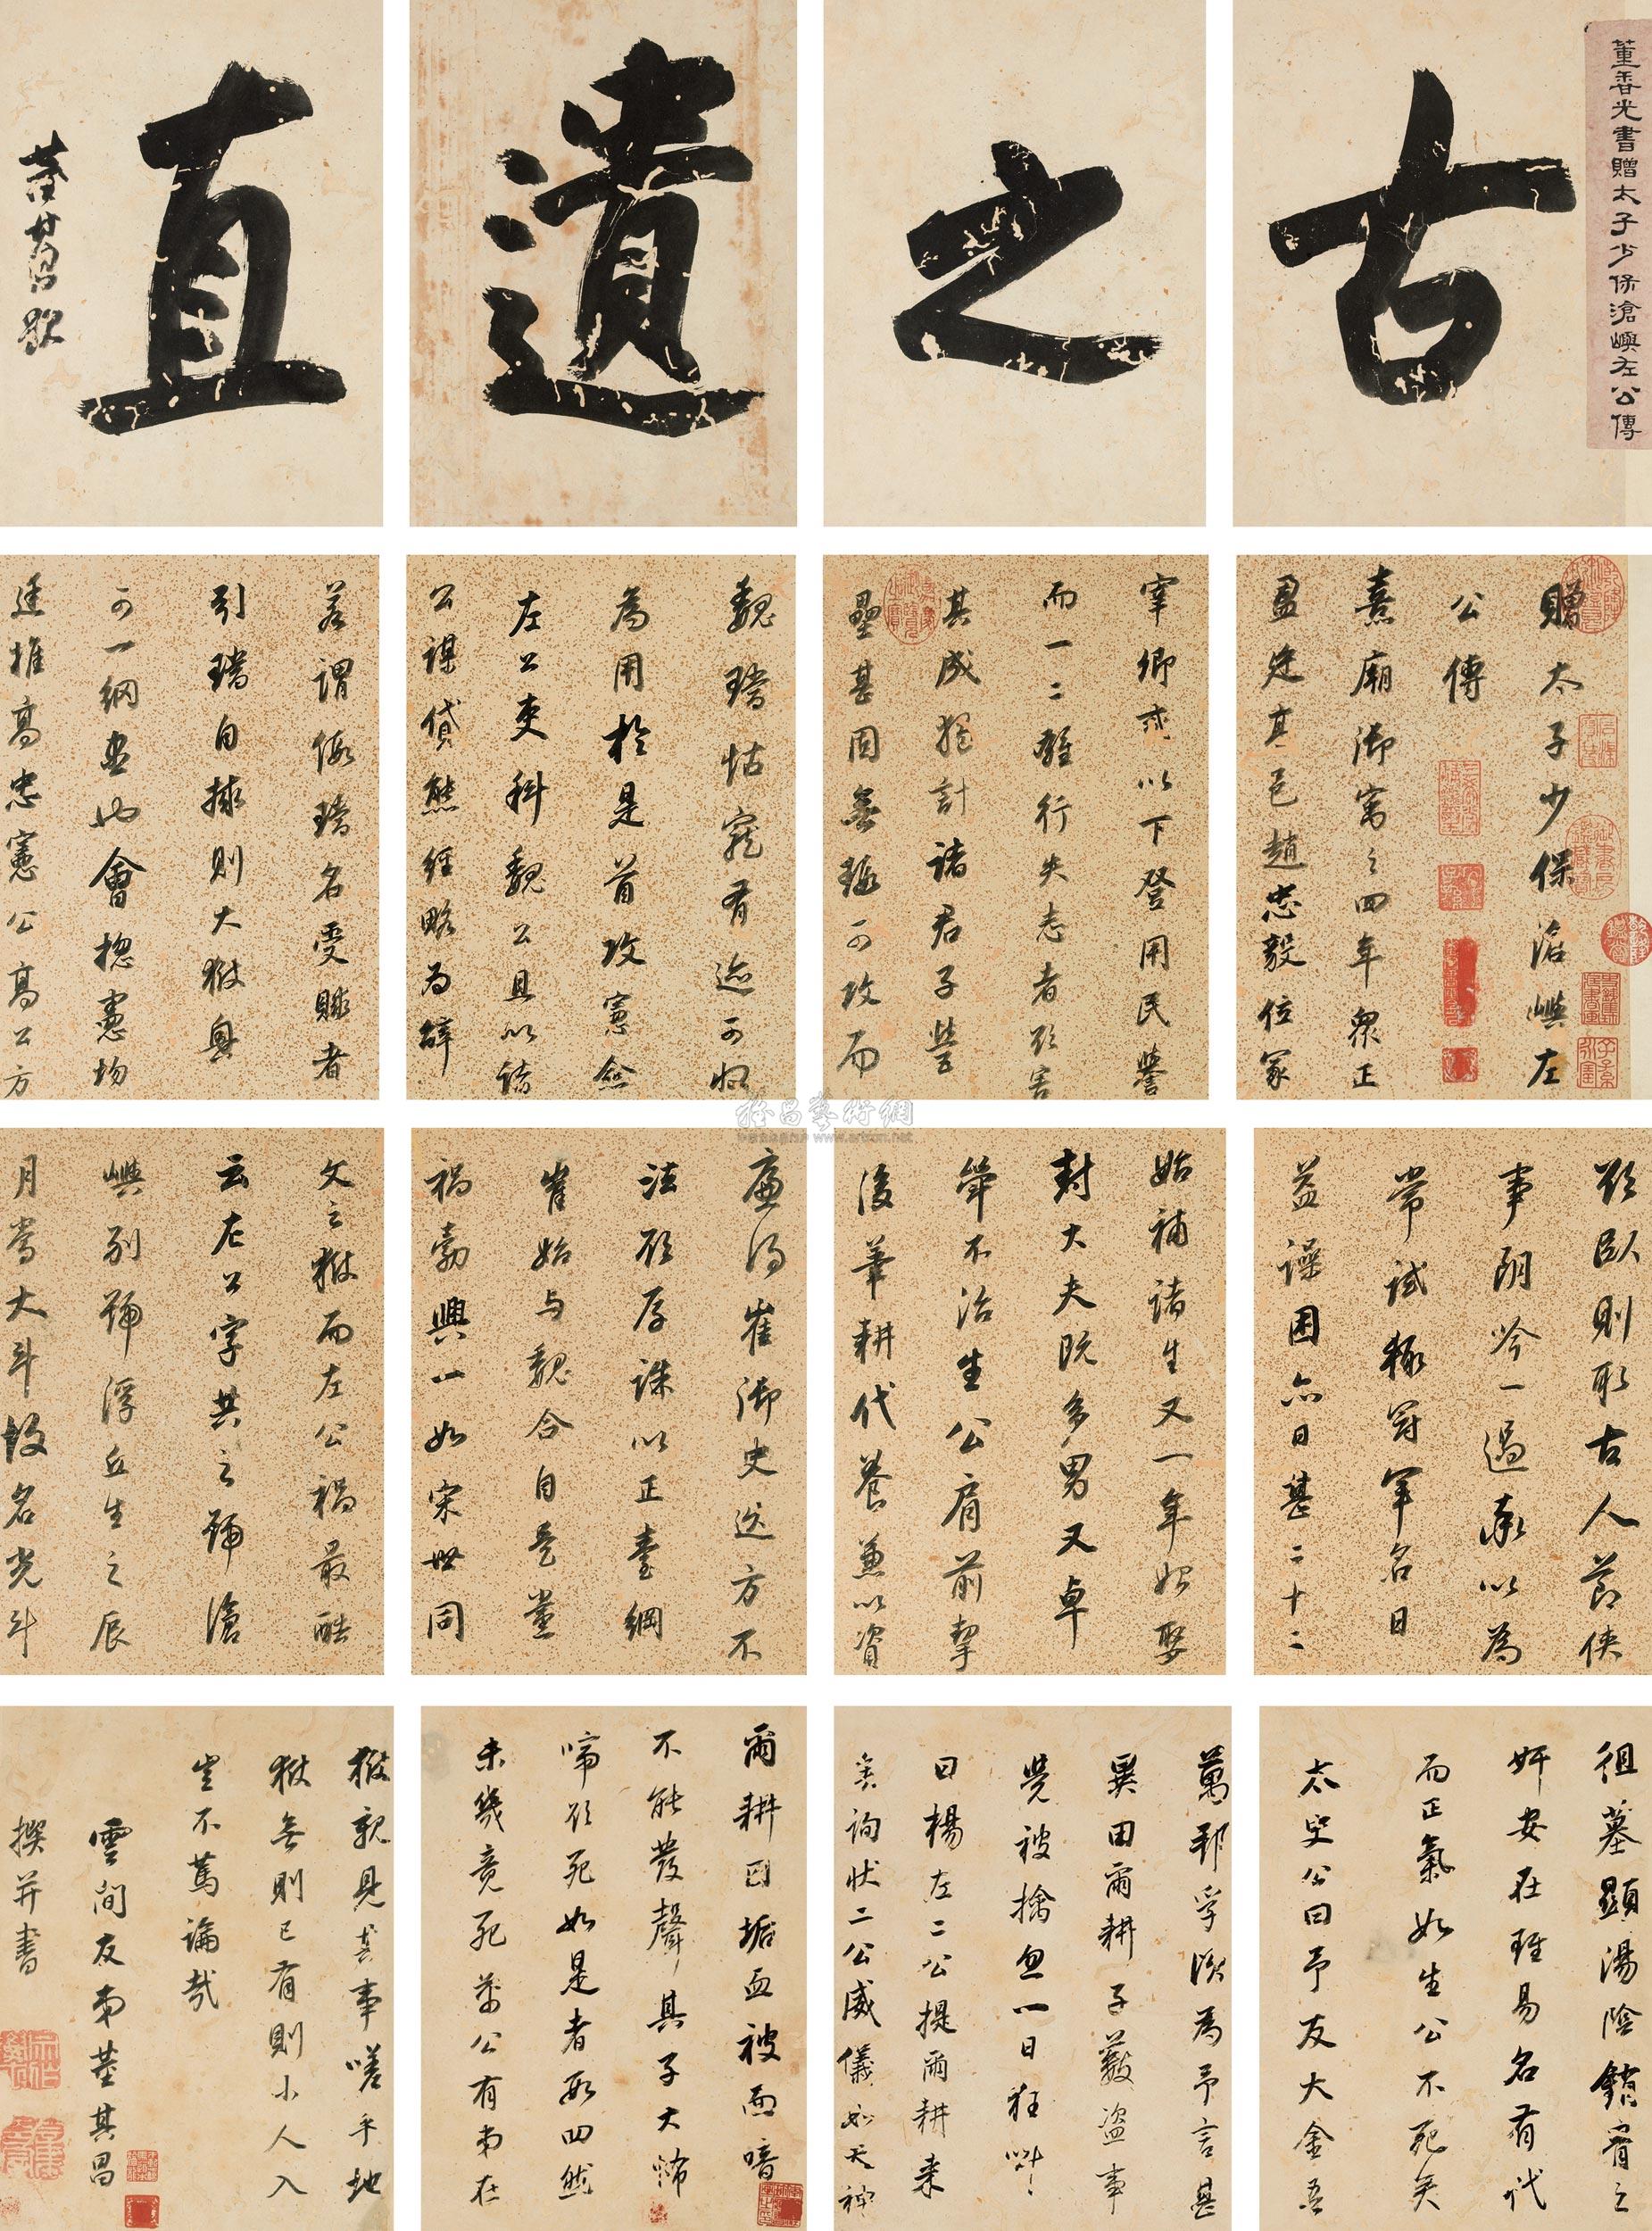 董香光書贈太子少保滄嶼左公傳
古
之
遺
直
董其昌題
贈太子少保滄嶼左
公傳
熹廟御寓之四年眾正
盈廷其邑趙忠毅位冢
宰卿貳以下登用民譽
而一二雜行失志者欲害
其成摠計諸君子營
壘甚固無瑕可攻而
魏璫怙寵有迹可狃
為用於是首攻憲僉
左公吏科魏公且以諸
公謀貸熊經略為辭
若謂傾璫名受賕者
引璫自救則大獄與
可一網盡也會摠憲均
逢推高忠憲公高公方
廉得崔御史迯方不
法欲厚誅以正臺綱
崔始与魏合自是黨
禍勃興一如宋世同
文之獄而左公禍最酷
云左公字共之號滄
嶼別號浮丘生之辰
月當大斗故名光斗
欲臥則取古人節俠
事朗吟一過率以為
常試輒冠軍名日
益譟困亦日甚二十二
始補諸生又一年始娶
封大夫既多男又卓
犖不治生公肩前挈
後筆耕代養兼以資
徂墓顯湯陰錯脊之
奸安在雖易名有代
而正氣如生公不死矣
太史公曰予友大金吾
萬邦孚淡為予言甚
異田爾耕子藪盜事
覺被擒忽一日狂叫
曰楊左二公提爾耕来
矣詢狀二公威儀如天神
爾耕目垢血被面喑
不能發聲其子大怖
啼欲死如是者再四然
未幾竟死萬公有弟在
獄親見其事嗟乎地
獄無則已有則小人入
豈不篤論哉
雲間友弟董其昌
撰并書